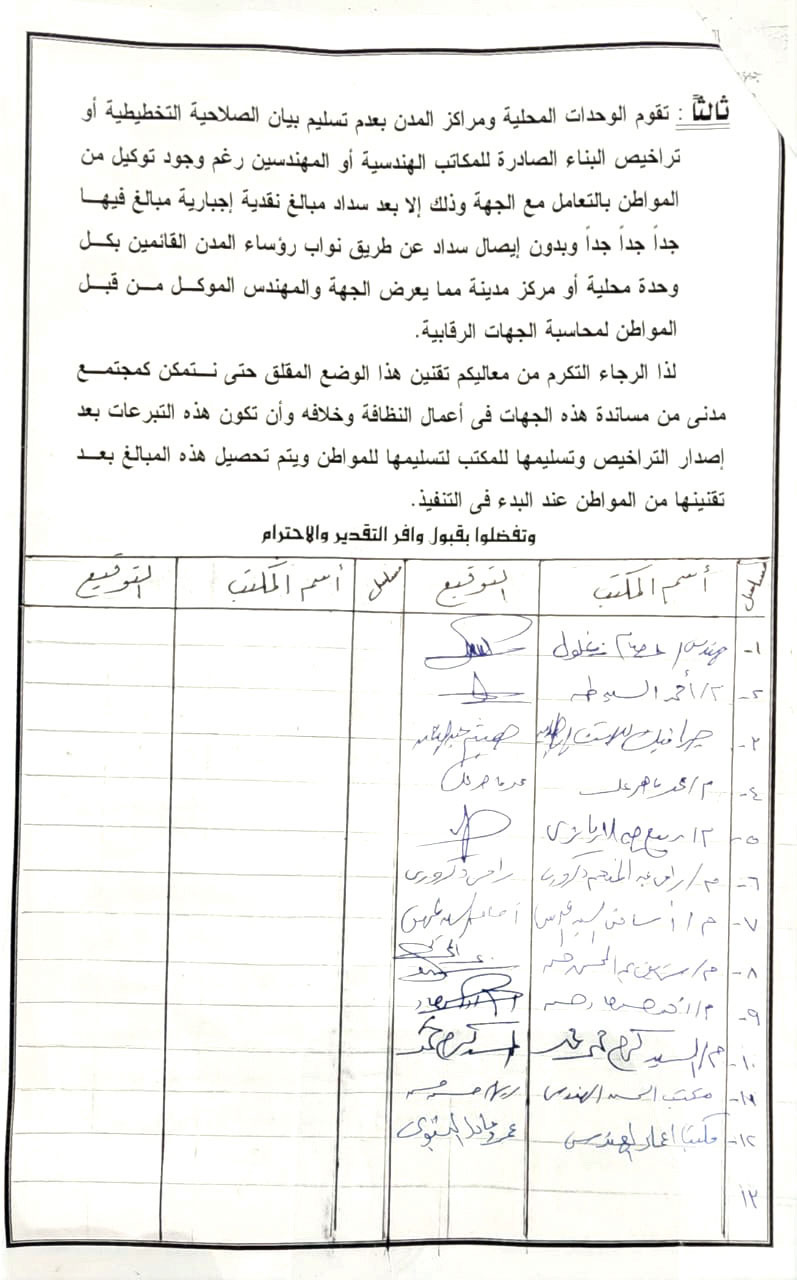 ثالثاً : تقوم الوحدات المحلية ومراكز المدن بعدم تسليم بيان الصلاحية التخطيطية أو
تراخيص البناء الصادرة للمكاتب الهندسية أو المهندسين رغم وجود توكيل من
المواطن بالتعامل مع الجهة وذلك إلا بعد سداد مبالغ نقدية إجبارية مبالغ فيها
جداً جداً جداً وبدون إيصال سداد عن طريق نواب رؤساء المدن القائمين بكل
وحدة محلية أو مركز مدينة مما يعرض الجهة والمهندس الموكل من قبل
المواطن لمحاسبة الجهات الرقابية.
لذا الرجاء التكرم من معاليكم تقنين هذا الوضع المقلق حتى نتمكن كمجتمع
مدنى من مساندة هذه الجهات فى أعمال النظافة وخلافه وأن تكون هذه التبرعات بعد
إصدار التراخيص وتسليمها للمكتب لتسليمها للمواطن ويتم تحصيل هذه المبالغ بعد
تقنينها من المواطن عند البدء فى التنفيذ.
وتفضلوا بقبول وافر التقدير والاحترام
مسلسل أسم المكتب التوقيع مسلسل أسم المكتب التوقيع
١- مهندس / عصام زغلول
٢- م/ أحمد السيد طه
٣- جرافيك
٤- م/ محمد ماهر على محمد ماهر على
٥- م/ ربيع
٦- م/ رامى عبد المنعم دكرورى رامى دكرورى
٧- م/ أسامة السيد
٨- م/
٩- م/ أحمد
١٠- م/ السيد كرم محمد السيد كرم محمد
١١- مكتب الهندسى
١٢- مكتب اعمار الهندسى عمرو
١٣